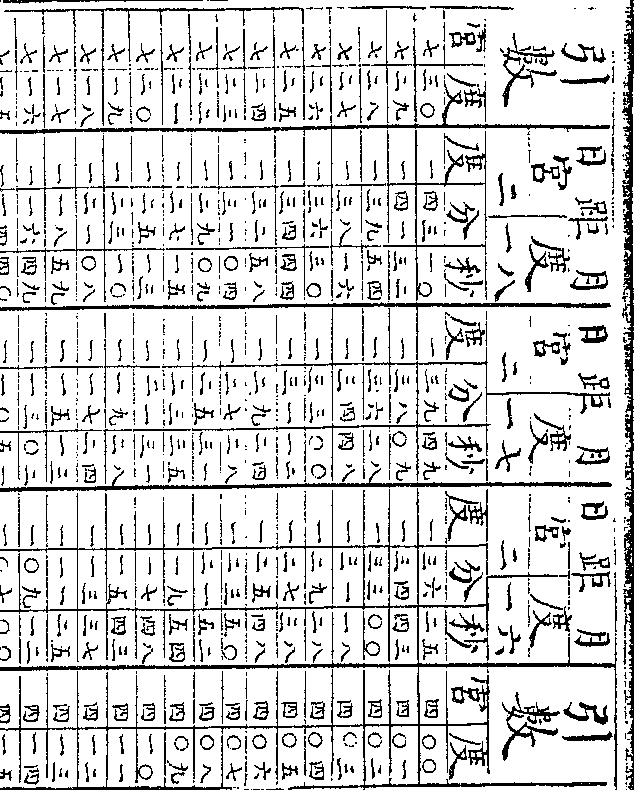 引數 日距月二宮一八度 日距月二宮一七度 日距月二宮一六度 引數
宮度 度分秒 度分秒 度分秒 宮度
七三〇 一四三一〇 一三九四九 一三六二五 四〇〇
七二九 一四一三二 一三八〇九 一三四四三 四〇一
七二八 一三九五四 一三六二八 一三三〇〇 四〇二
七二七 一三八一六 一三四四八 一三一一八 四〇三
七二六 一三六三〇 一三三〇〇 一二九二八 四〇四
七二五 一三四四四 一三一一二 一二七三八 四〇五
七二四 一三二五八 一二九二四 一二五四八 四〇六
七二三 一三一〇四 一二七二八 一二三五〇 四〇七
七二二 一二九〇九 一二五三一 一二一五二 四〇八
七二一 一二七一五 一二三三五 一一九五四 四〇九
七二〇 一二五一三 一二一三一 一一七四八 四一〇
七一九 一二三一〇 一一九二八 一一五四三 四一一
七一八 一二一〇八 一一七二四 一一三三七 四一二
七一七 一一八五九 一一五一三 一一一二五 四一三
七一六 一一六四九 一一三〇二 一〇九一二 四一四